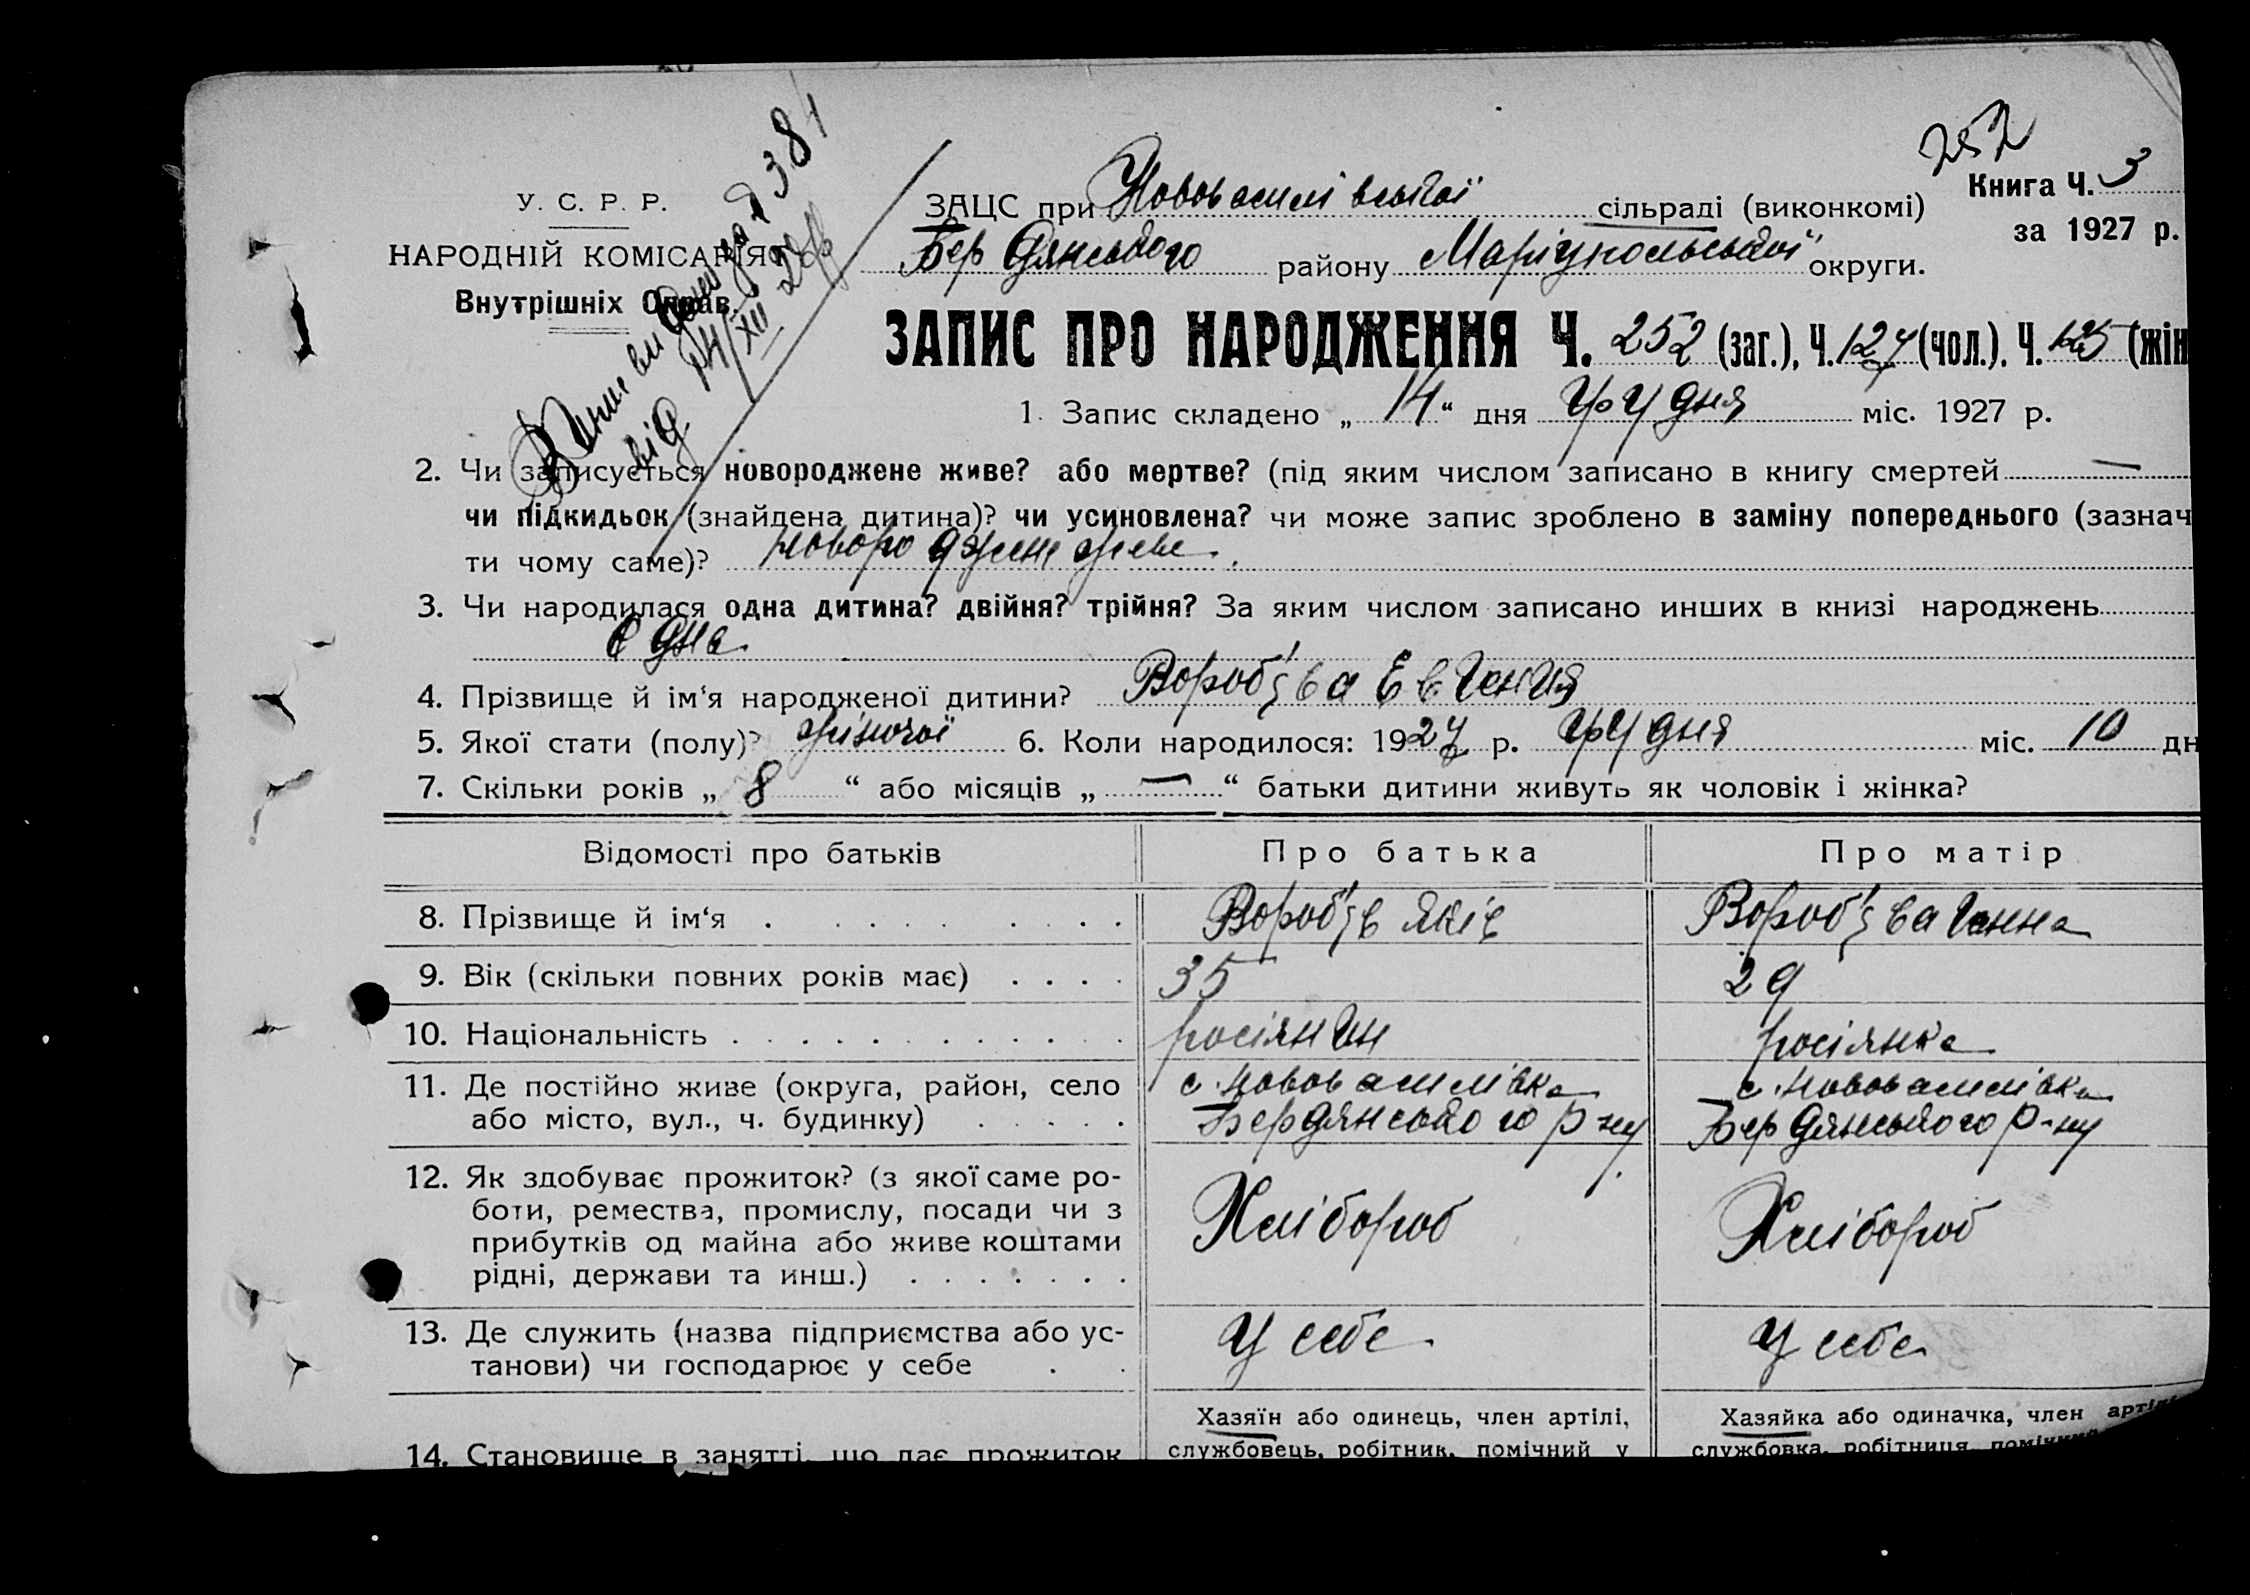 252
Книга Ч. 3
за 1927 р.
У. С. Р. Р.
НАРОДНІЙ КОМІСАРІЯТ
Внутрішніх Справ.
від 14/XII 27 р
ЗАЦС при Нововасилівської сільраді (виконкомі)
Бердянського району Маріупольської округи.
ЗАПИС ПРО НАРОДЖЕННЯ Ч. 252 (заг.), Ч. 127 (чол.). Ч. 125 (жін
1. Запис складено „ 14 “ дня грудня міс. 1927 р.
2. Чи записується новороджене живе? або мертве? (під яким числом записано в книгу смертей —
чи підкидьок (знайдена дитина)? чи усиновлена? чи може запис зроблено в заміну попереднього (зазнач
ти чому саме)? новороджене живе.
3. Чи народилася одна дитина? двійня? трійня? За яким числом записано инших в книзі народжень
одна
4. Прізвище й ім‘я народженої дитини? Вороб'їва Евгенія
5. Якої стати (полу)? жіночої 6. Коли народилося: 1927 р. грудня міс. 10 дн
7. Скільки років „ 8 “ або місяців „ — “ батьки дитини живуть як чоловік і жінка?
Відомості про батьків Про батька Про матір
8. Прізвище й ім‘я . . . . . . . . . Вороб'їв Яків Вороб'їва Ганна
9. Вік (скільки повних років має) . . . . 35 29
10. Національність . . . . . . . . . . . . росіянин росіянка
11. Де постійно живе (округа, район, село с. Нововасилівка с. Нововасилівка
або місто, вул., ч. будинку) . . . . . Бердянського р-ну Бердянського р-ну
12. Як здобуває прожиток? (з якої саме ро-
боти, ремества, промислу, посади чи з Хлібороб Хлібороб
прибутків од майна або живе коштами
рідні, держави та инш.) . . . . . . .
13. Де служить (назва підприємства або ус- У себе У себе
танови) чи господарює у себе . .
Хазяїн або одинець, член артілі, Хазяйка або одиначка, член артілі
14. Становище в занятті, що дає прожиток службовець, робітник, помічний у службовка, робітниця, помічний